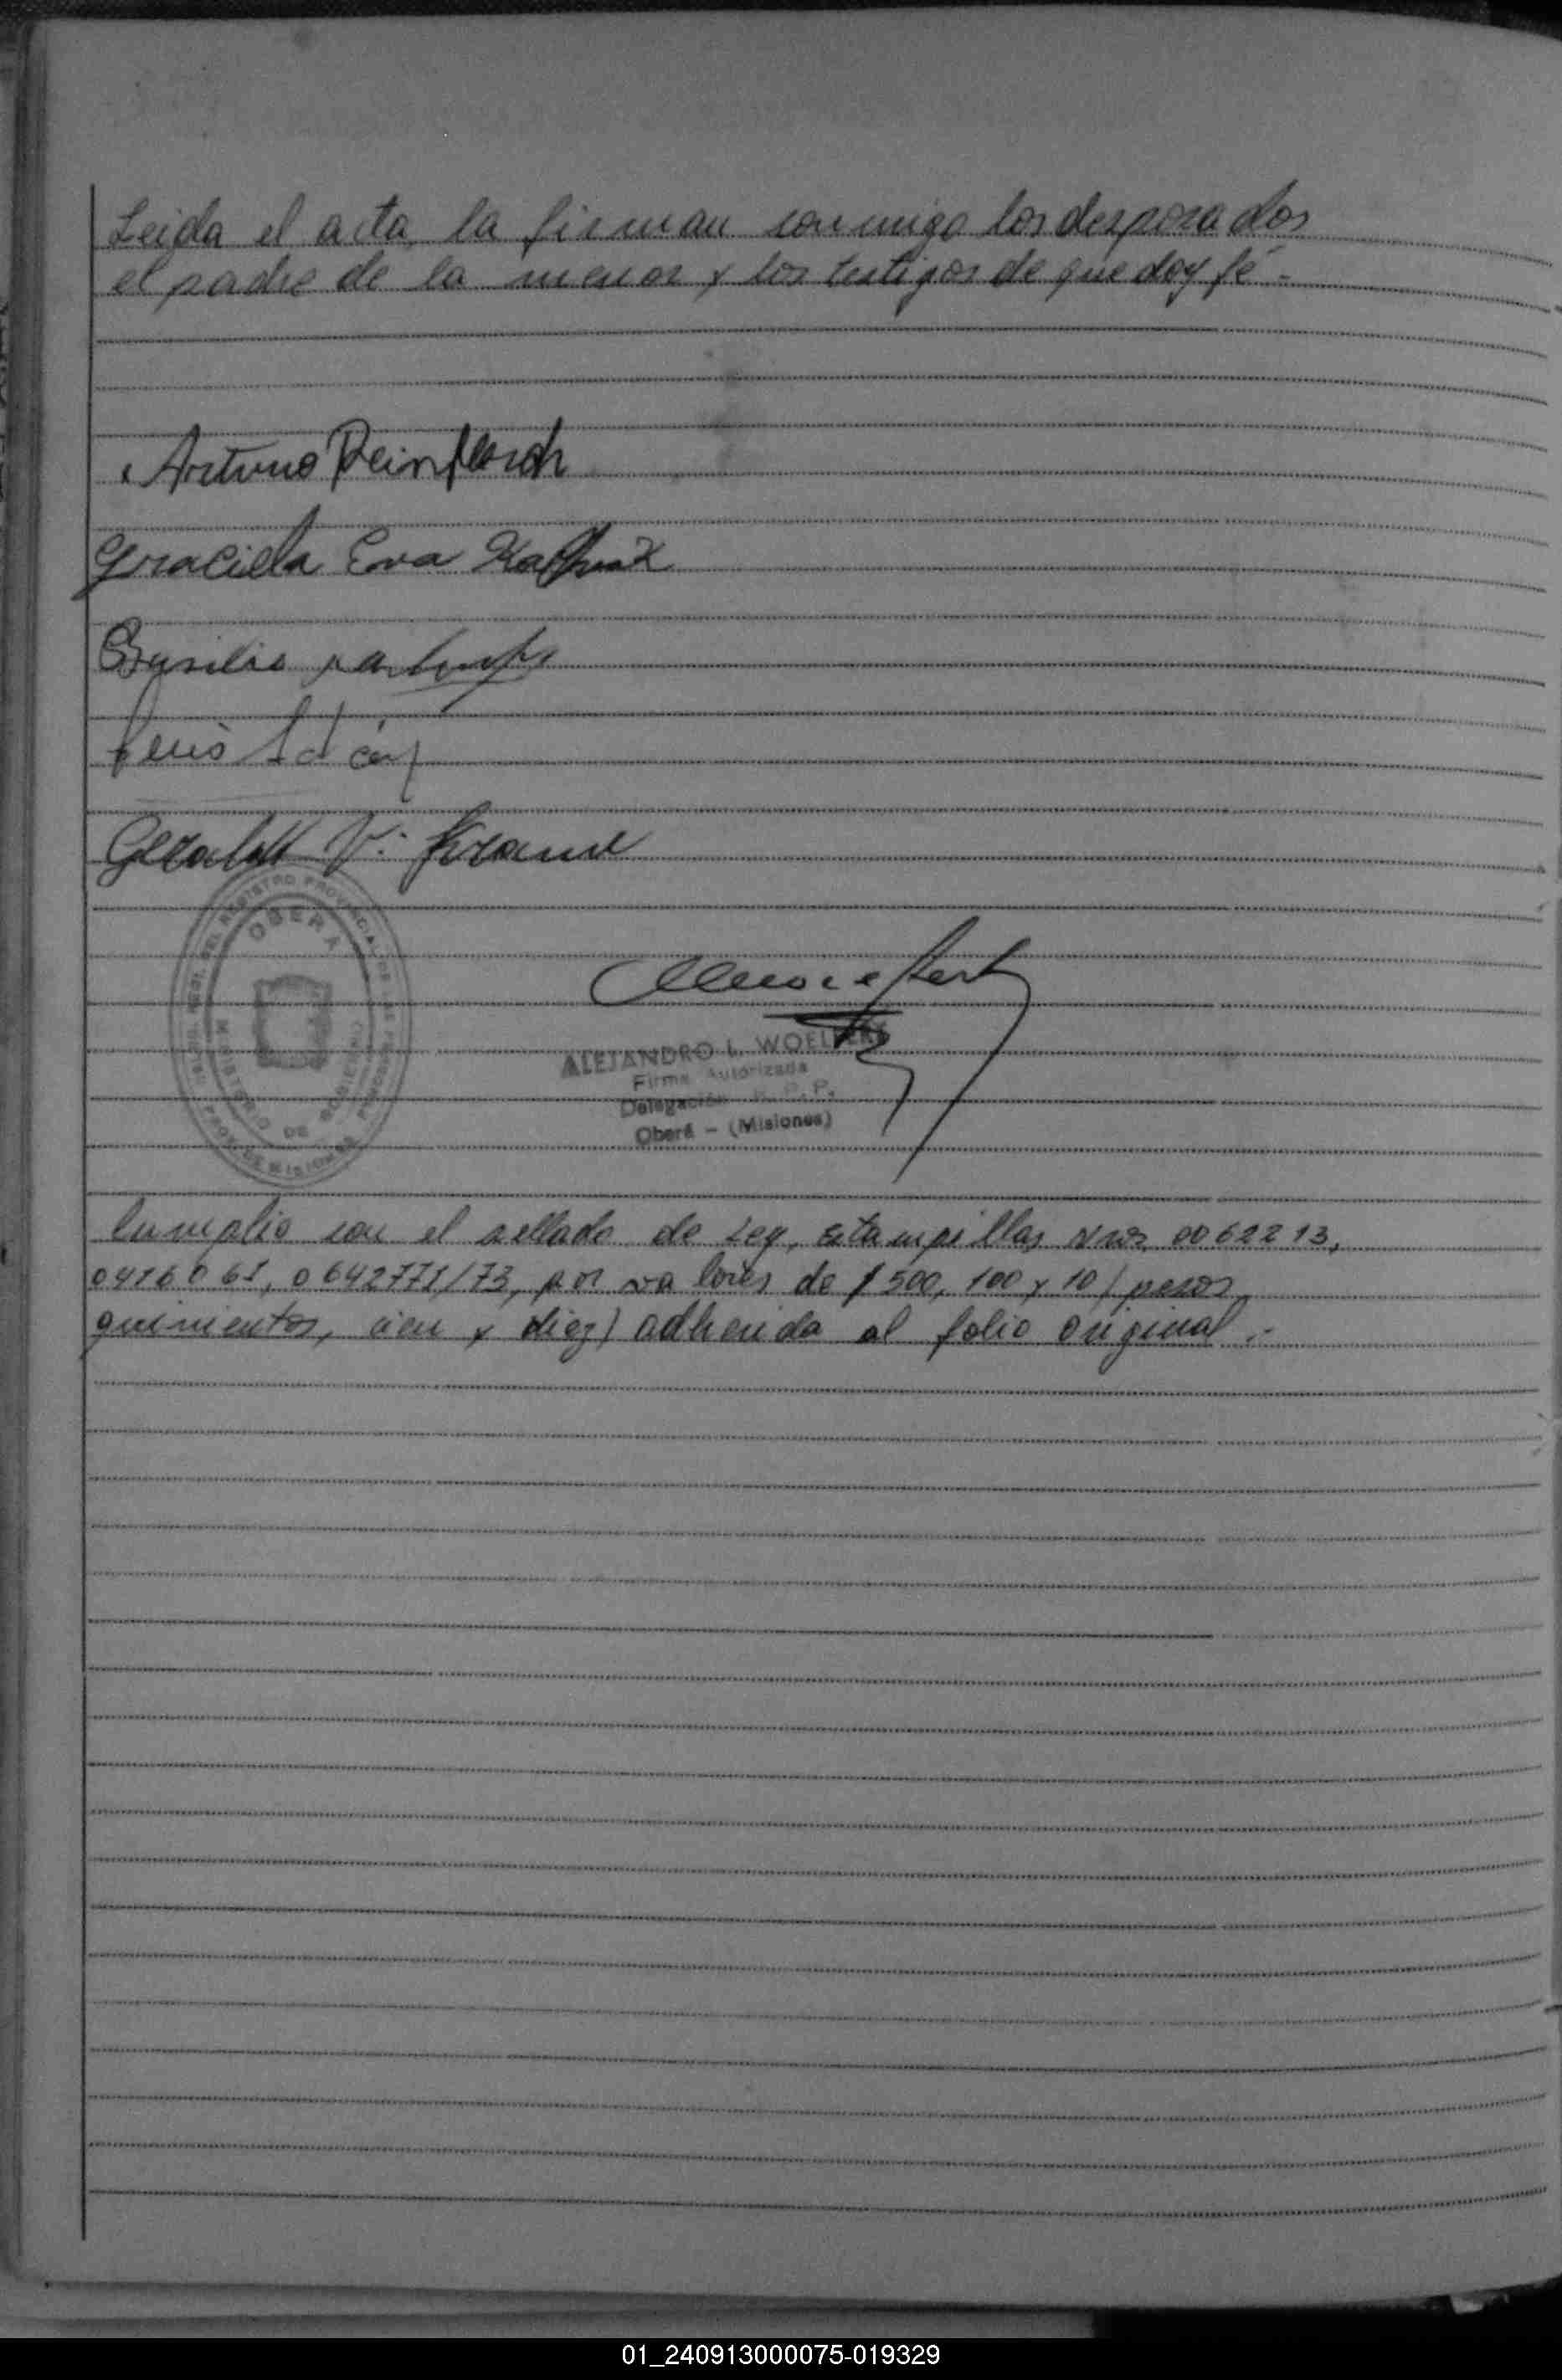 Leida el acta, la firman conmigo los desposados
el padre de la menor y los testigos de que doy fé.-
Arturo
Graciela Eva
Basilio
V. Krause
OBERA
MINISTERIO DE GOBIERNO
PROV. DE MISIONES
ALEJANDRO L.
Firma Autorizada
Delegación R. P. P.
Oberá - (Misiones)
Cumplio con el sellado de Ley, Estampillas Nros. 0062213,
0416061, 0642771/73, por valores de $ 500, 100 y 10 ( pesos
quinientos, cien y diez) adherida al folio original.-
01_240913000075-019329